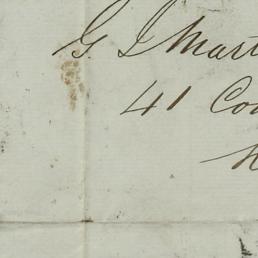 G. I Mart
41 Co